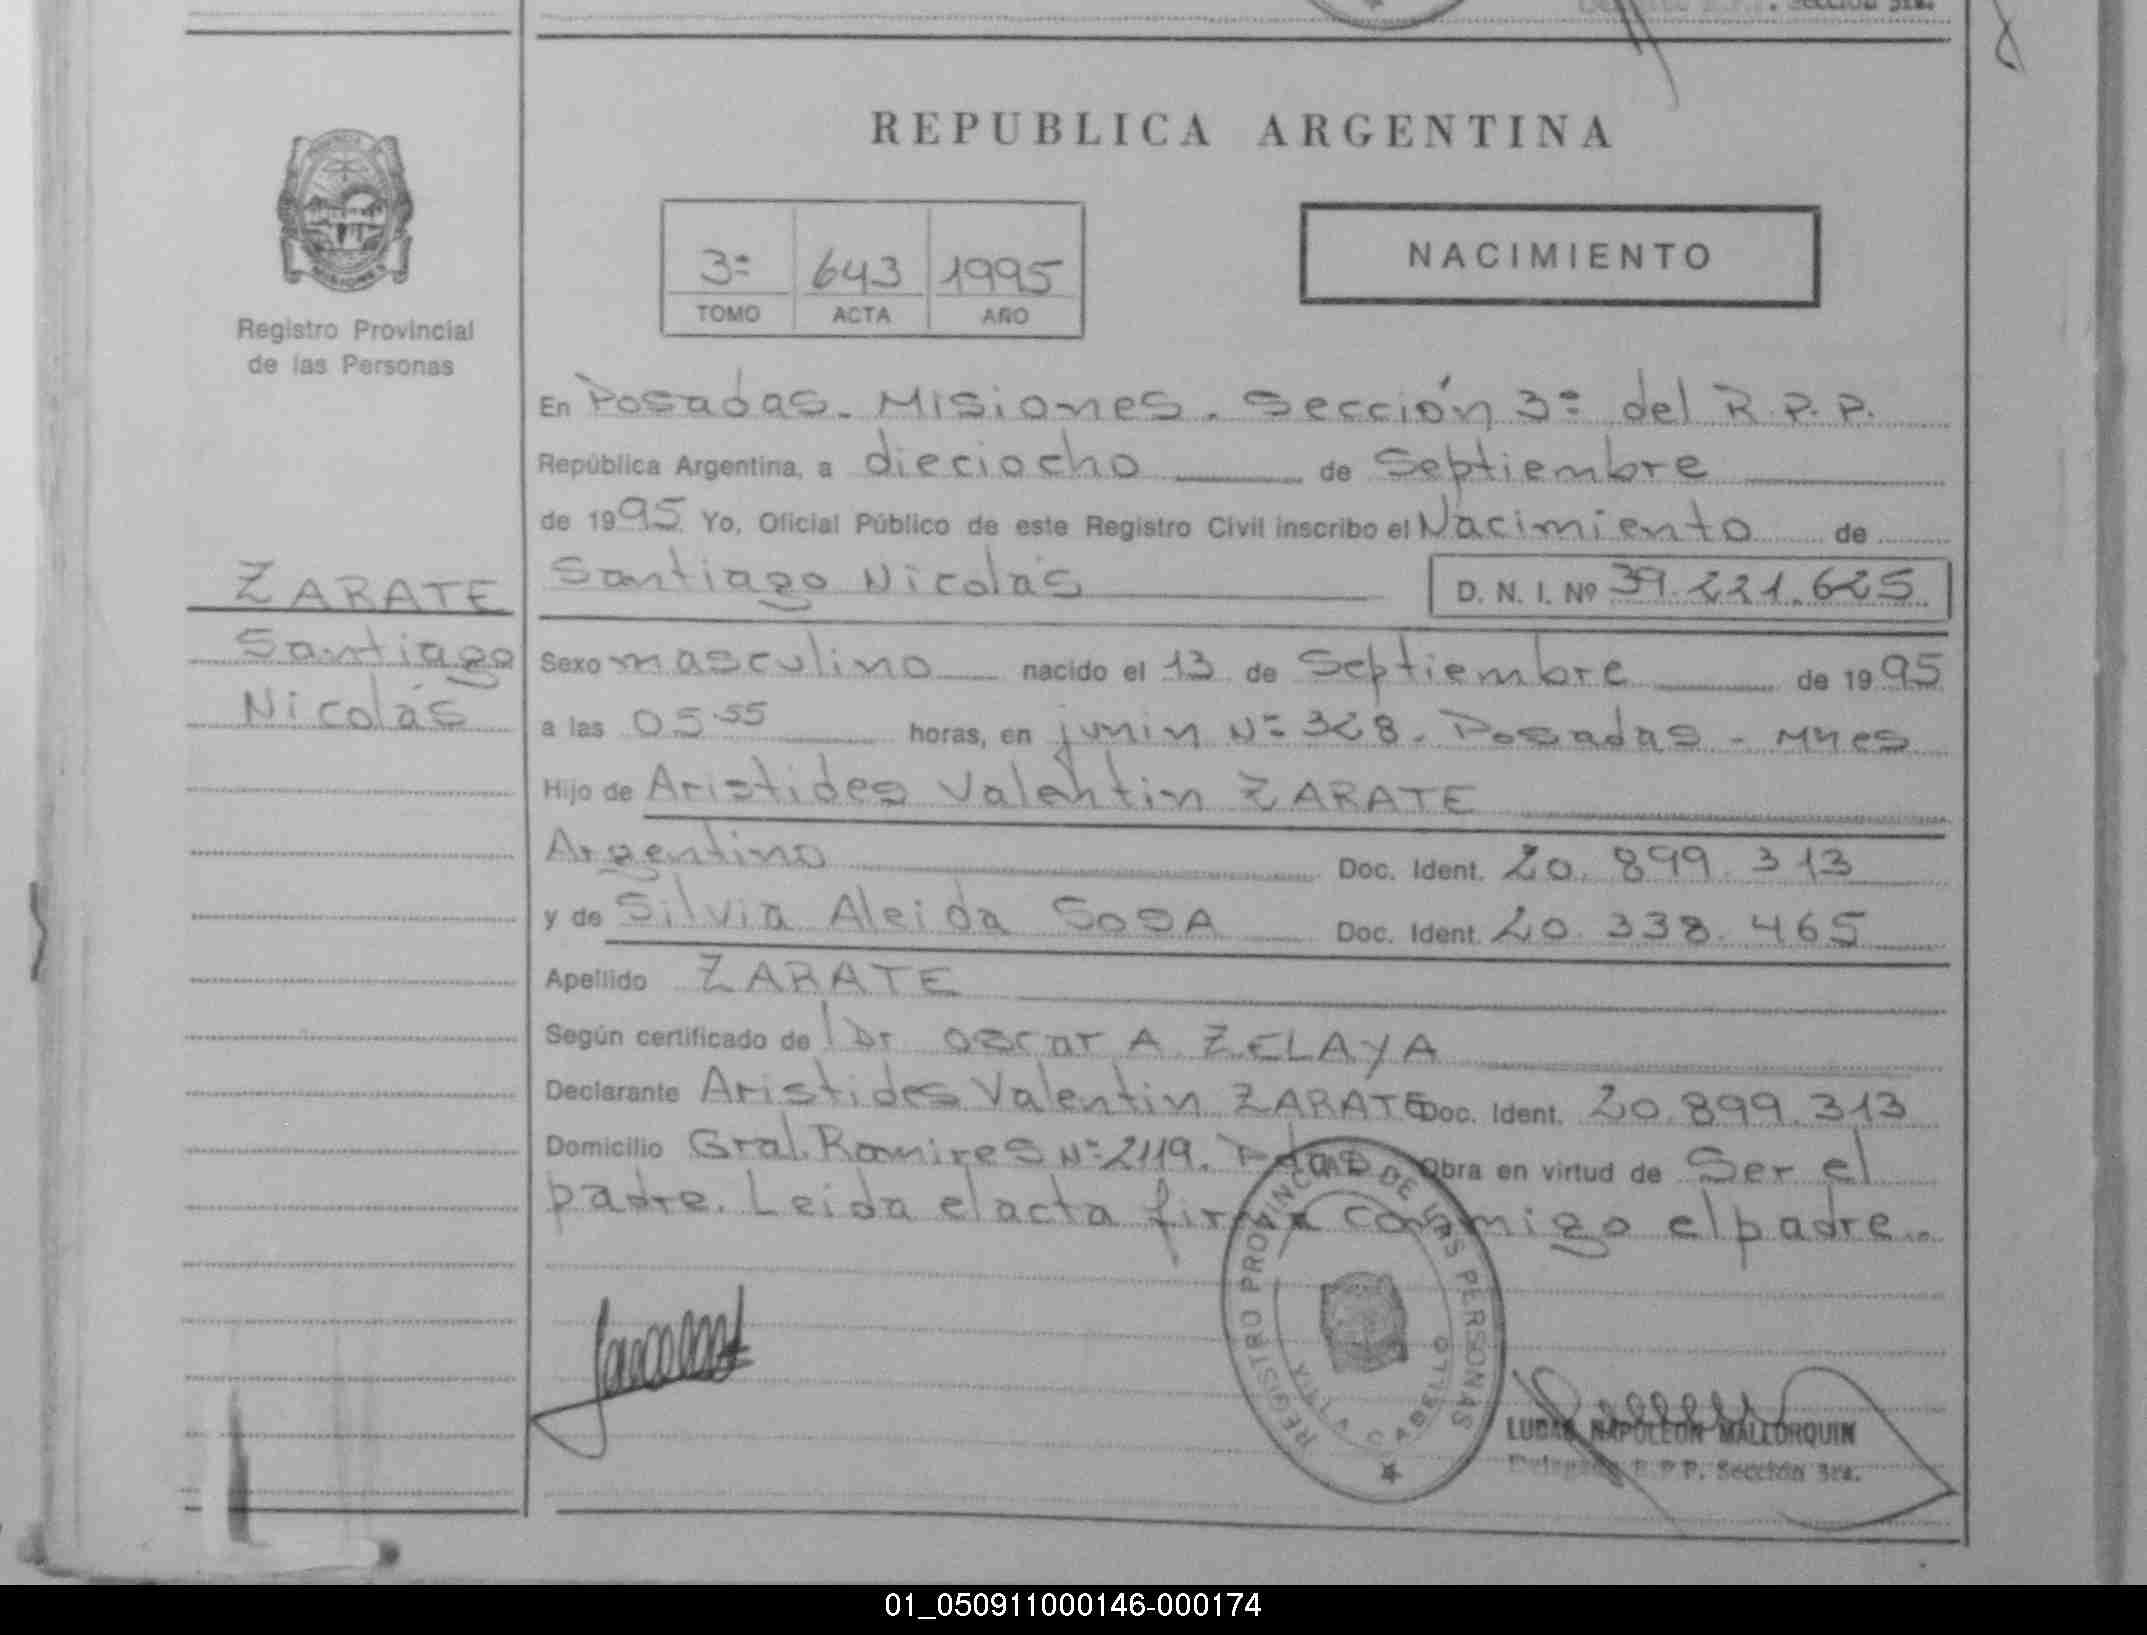 Sección 3ra.
REPUBLICA ARGENTINA
3ª 643 1995
TOMO ACTA AÑO
NACIMIENTO
Registro Provincial
de las Personas
En Posadas. Misiones. Sección 3ª del R.P.P.
República Argentina, a dieciocho de Septiembre
de 1995 Yo, Oficial Público de este Registro Civil inscribo el Nacimiento de
Santiago Nicolás D. N. I. Nº 39.221.625
ZARATE
Santiago
Nicolás
Sexo masculino nacido el 13 de Septiembre de 1995
a las 05:55 horas, en junin Nº 328. Posadas - Mnes
Hijo de Aristides Valentin ZARATE
Argentino Doc. Ident. 20.899.313
y de Silvia Aleida SOSA Doc. Ident. 20.338.465
Apellido ZARATE
Según certificado de Dr Oscar A ZELAYA
Declarante Aristides Valentin ZARATE Doc. Ident. 20.899.313
Domicilio Gral. Ramires Nº 2119. Pdas Obra en virtud de Ser el
padre. Leida el acta firma conmigo el padre..
REGISTRO PROVINCIAL DE LAS PERSONAS
VILLA CABELLO
LUCAS NAPOLEON MALLORQUIN
Delegado R.P.P. Sección 3ra.
01_050911000146-000174